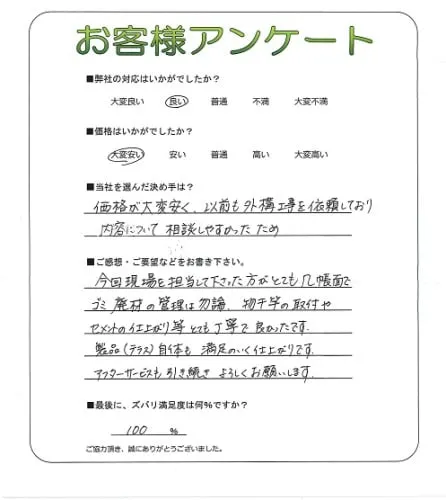 お客様アンケート
■弊社の対応はいかがでしたか？
大変良い 良い 普通 不満 大変不満
■価格はいかがでしたか？
大変安い 安い 普通 高い 大変高い
■当社を選んだ決め手は？
価格が大変安く、以前も外構工事を依頼しており
内容について 相談しやすかった ため
■ご感想・ご要望などをお書き下さい。
今回現場を担当して下さった方がとても几帳面で
ゴミ 廃材の管理は勿論、物干竿の取付や
セメントの仕上がり等とても丁寧で良かったです。
製品(テラス)自体も 満足のいく仕上がりです。
アフターサービスも引き続き よろしくお願いします。
■最後に、ズバリ満足度は何%ですか？
100 %
ご協力頂き、誠にありがとうございました。